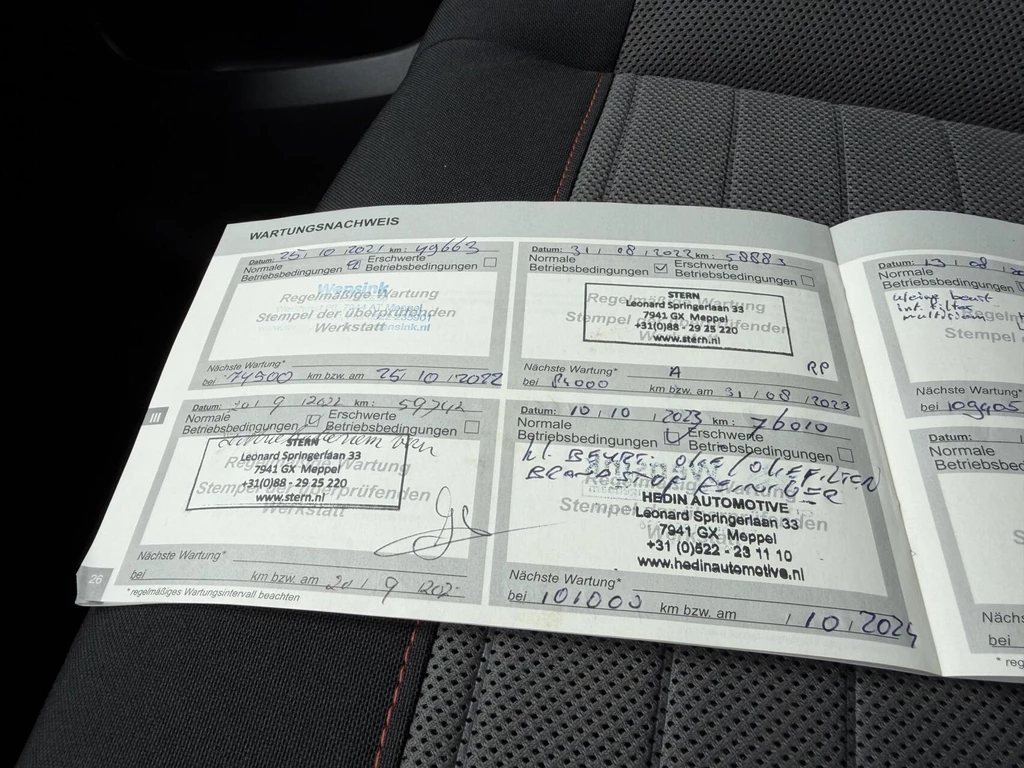 WARTUNGSNACHWEIS
Datum: 25 / 10 / 2021 km: 49663
Normale Betriebsbedingungen Erschwerte Betriebsbedingungen
Wensink
Regelmäßige Wartung
Meppel
Stempel der überprüfenden
Werkstatt
nsink.nl
Nächste Wartung*
bei 74900 km bzw. am 25 / 10 / 2022
Datum: 31 / 08 / 2022 km: 58883
Normale Betriebsbedingungen Erschwerte Betriebsbedingungen
STERN
Leonard Springerlaan 33
7941 GX Meppel
+31(0)88 - 29 25 220
www.stern.nl
Nächste Wartung* A RP
bei 84000 km bzw. am 31 / 08 / 2023
Datum: 20 / 9 / 2022 km: 59742
Normale Betriebsbedingungen Erschwerte Betriebsbedingungen
STERN
Leonard Springerlaan 33
7941 GX Meppel
+31(0)88 - 29 25 220
www.stern.nl
Regelmäßige Wartung
Stempel der überprüfenden
Werkstatt
Nächste Wartung*
bei km bzw. am 20 / 9 / 202
* regelmäßiges Wartungsintervall beachten
26
III
Datum: 10 / 10 / 2023 km: 76010
Normale Betriebsbedingungen Erschwerte Betriebsbedingungen
kl. BEURT. OLIE / OLIEFILTER
HEDIN AUTOMOTIVE
Leonard Springerlaan 33
7941 GX Meppel
+31 (0)522 - 23 11 10
www.hedinautomotive.nl
Nächste Wartung*
bei 101000 km bzw. am / 10 / 2024
Datum: 13 / 08 / 20
Normale
Betriebsbedingungen
kleine beurt
int. filter
Regeln
Stempel
Nächste Wartung*
bei 109905
Datum:
Normale
Betriebsbed
Nächs
bei
* reg